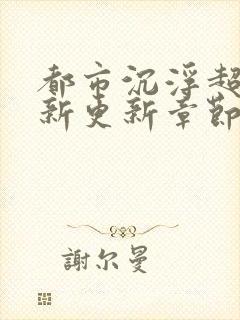 都市沉浮超
新更新章節
謝尔曼